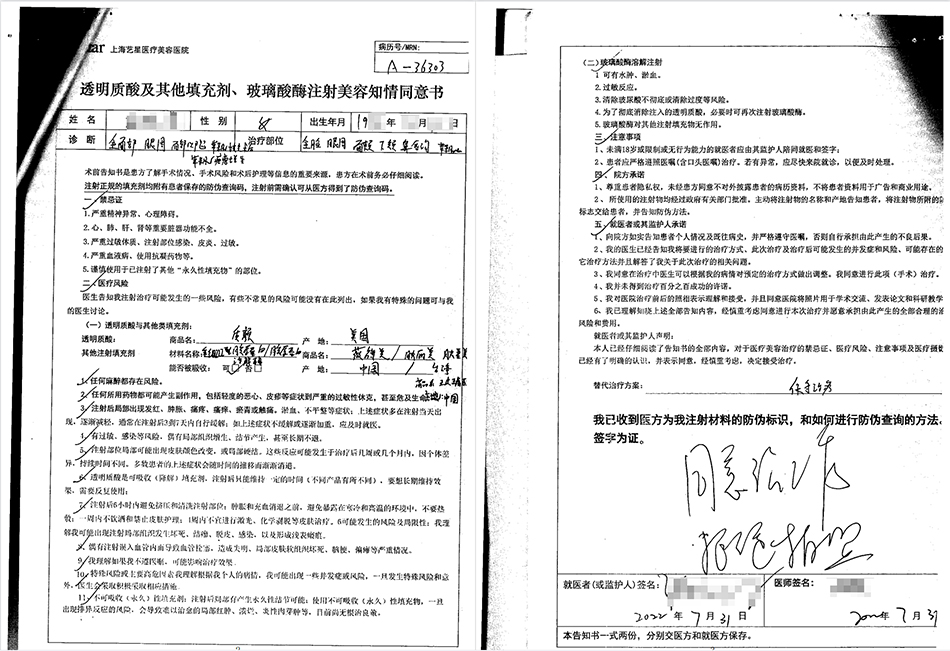 上海艺星医疗美容医院
病历号/MRN:
A-36303
透明质酸及其他填充剂、玻璃酸酶注射美容知情同意书
姓 名
性 别
女
出生年月
19 年 月 日
诊 断
全面部 眼周
治疗部位
全脸 眼周
术前告知书是患方了解手术情况、手术风险和术后护理等信息的重要来源，患方在术前务必仔细阅读。
注射正规的填充剂均附有患者保存的防伪查询码，注射前需确认可从医方得到了防伪查询码。
一、禁忌证
1.严重精神异常、心理障碍。
2.心、肺、肝、肾等重要脏器功能不全。
3.严重过敏体质、注射部位感染、皮炎、过敏。
4.严重血液病、使用抗凝药物等。
5.谨慎使用于已注射了其他“永久性填充物”的部位。
二、医疗风险
医生告知我注射治疗可能发生的一些风险，有些不常见的风险可能没有在此列出，如果我有特殊的问题可与我
的医生讨论。
（一）透明质酸与其他类填充剂：
透明质酸： 商品名： 产 地： 美国
其他注射填充剂 材料名称： 商品名：
能否被吸收： 可 否 产 地： 中国 / 台湾
1、任何麻醉都存在风险。
2、任何所用药物都可能产生副作用，包括轻度的恶心、皮疹等症状到严重的过敏性休克，甚至危及生命
3、注射后局部出现发红、肿胀、痛疼、瘙痒、瘀青或触痛。淤血、不平整等症状；上述症状多在注射当天出
现，逐渐减轻，通常在注射后3到7天内自行缓解；如上述症状不缓解或逐渐加重，应及时就医。
4、有过敏、感染等风险，偶有局部组织增生、结节产生，甚至长期不退。
5、注射部位局部可能出现皮肤颜色改变，或局部硬结。这些反应可能发生于治疗后几周或几个月内，因个体差
异，持续时间不同。多数患者的上述症状会随时间的推移而逐渐消退。
6、透明质酸是可吸收（降解）填充剂，注射后只能维持一定的时间（不同产品有所不同），要想长期维持效
果，需要反复使用；
7、注射后6小时内避免挤压和清洗注射部位；肿胀和充血消退之前，避免暴露在寒冷和高温的环境中，不要热
敷；一周内不饮酒和禁止皮肤护理；1周内不宜进行激光、化学剥脱等皮肤治疗。6可能发生的风险及局限性：我理
解我可能出现注射局部组织发生坏死、结痂、脱皮、感染，以及形成浅表瘢痕。
8、偶有注射误入血管内而导致血管栓塞，造成失明、局部皮肤软组织坏死、脑梗、偏瘫等严重情况。
9、我理解如果我不遵医嘱，可能影响治疗效果。
10、特殊风险或主要高危因素我理解根据我个人的病情，我可能出现一些并发症或风险，一旦发生特殊风险和意
外，医生会采取积极采取相应措施。
11、不可吸收（永久）性填充剂：注射后局部有产生永久性结节可能；使用不可吸收（永久）性填充物，一旦
出现排异反应的风险，会导致难以治愈的局部红肿、溃疡、炎性肉芽肿等，目前尚无根治良策。
（二）玻璃酸酶溶解注射
1.可有水肿、淤血。
2.过敏反应。
3.清除玻尿酸不彻底或清除过度等风险。
4.为了彻底消除注入的透明质酸，必要时可再次注射玻璃酸酶。
5.玻璃酸酶对其他注射填充物无作用。
三、注意事项
1、未满18岁或限制或无行为能力的就医者应由其监护人陪同就医和签字；
2、患者应严格遵照医嘱（含口头医嘱）治疗。若有异常，应尽快来院就诊，以便及时处理。
四、院方承诺
1、尊重患者隐私权，未经患方同意不对外披露患者的病历资料，不将患者资料用于广告和商业用途。
2、所使用的注射物均经过政府有关部门批准。主动将注射物的名称和产地告知患者，将注射物所附的
标志交给患者，并告知防伪方法。
五、就医者或其监护人承诺
1、向院方如实告知患者个人情况及既往病史，并严格遵守医嘱，否则自行承担由此产生的不良后果。
2、我的医生已经告知我将要进行的治疗方式、此次治疗及治疗后可能发生的并发症和风险、可能存在的
它治疗方法并且解答了我关于此次治疗的相关问题。
3、我同意在治疗中医生可以根据我的病情对预定的治疗方式做出调整。我同意进行此项（手术）治疗。
4、我并未得到治疗百分之百成功的许诺。
5、我对医院治疗前后的照相表示理解和接受，并且同意医院将照片用于学术交流、发表论文和科研教学
6、我已理解如晓上述全部告知内容，经慎重考虑同意进行本次治疗并愿意承担由此产生的全部合理的治
风险和费用。
就医者或其监护人声明：
本人已经仔细阅读了告知书的全部内容，对于医疗美容治疗的禁忌证、医疗风险、注意事项及医疗措
已经有了明确的认识，并表示同意。经慎重考虑，决定接受治疗。
替代治疗方案： 保守治疗
我已收到医方为我注射材料的防伪标识，和如何进行防伪查询的方法、
签字为证。
同意治疗
就医者(或监护人)签名：
医师签名：
2022 年 7 月 31 日
2022年 7 月 31
本告知书一式两份，分别交医方和就医方保存。